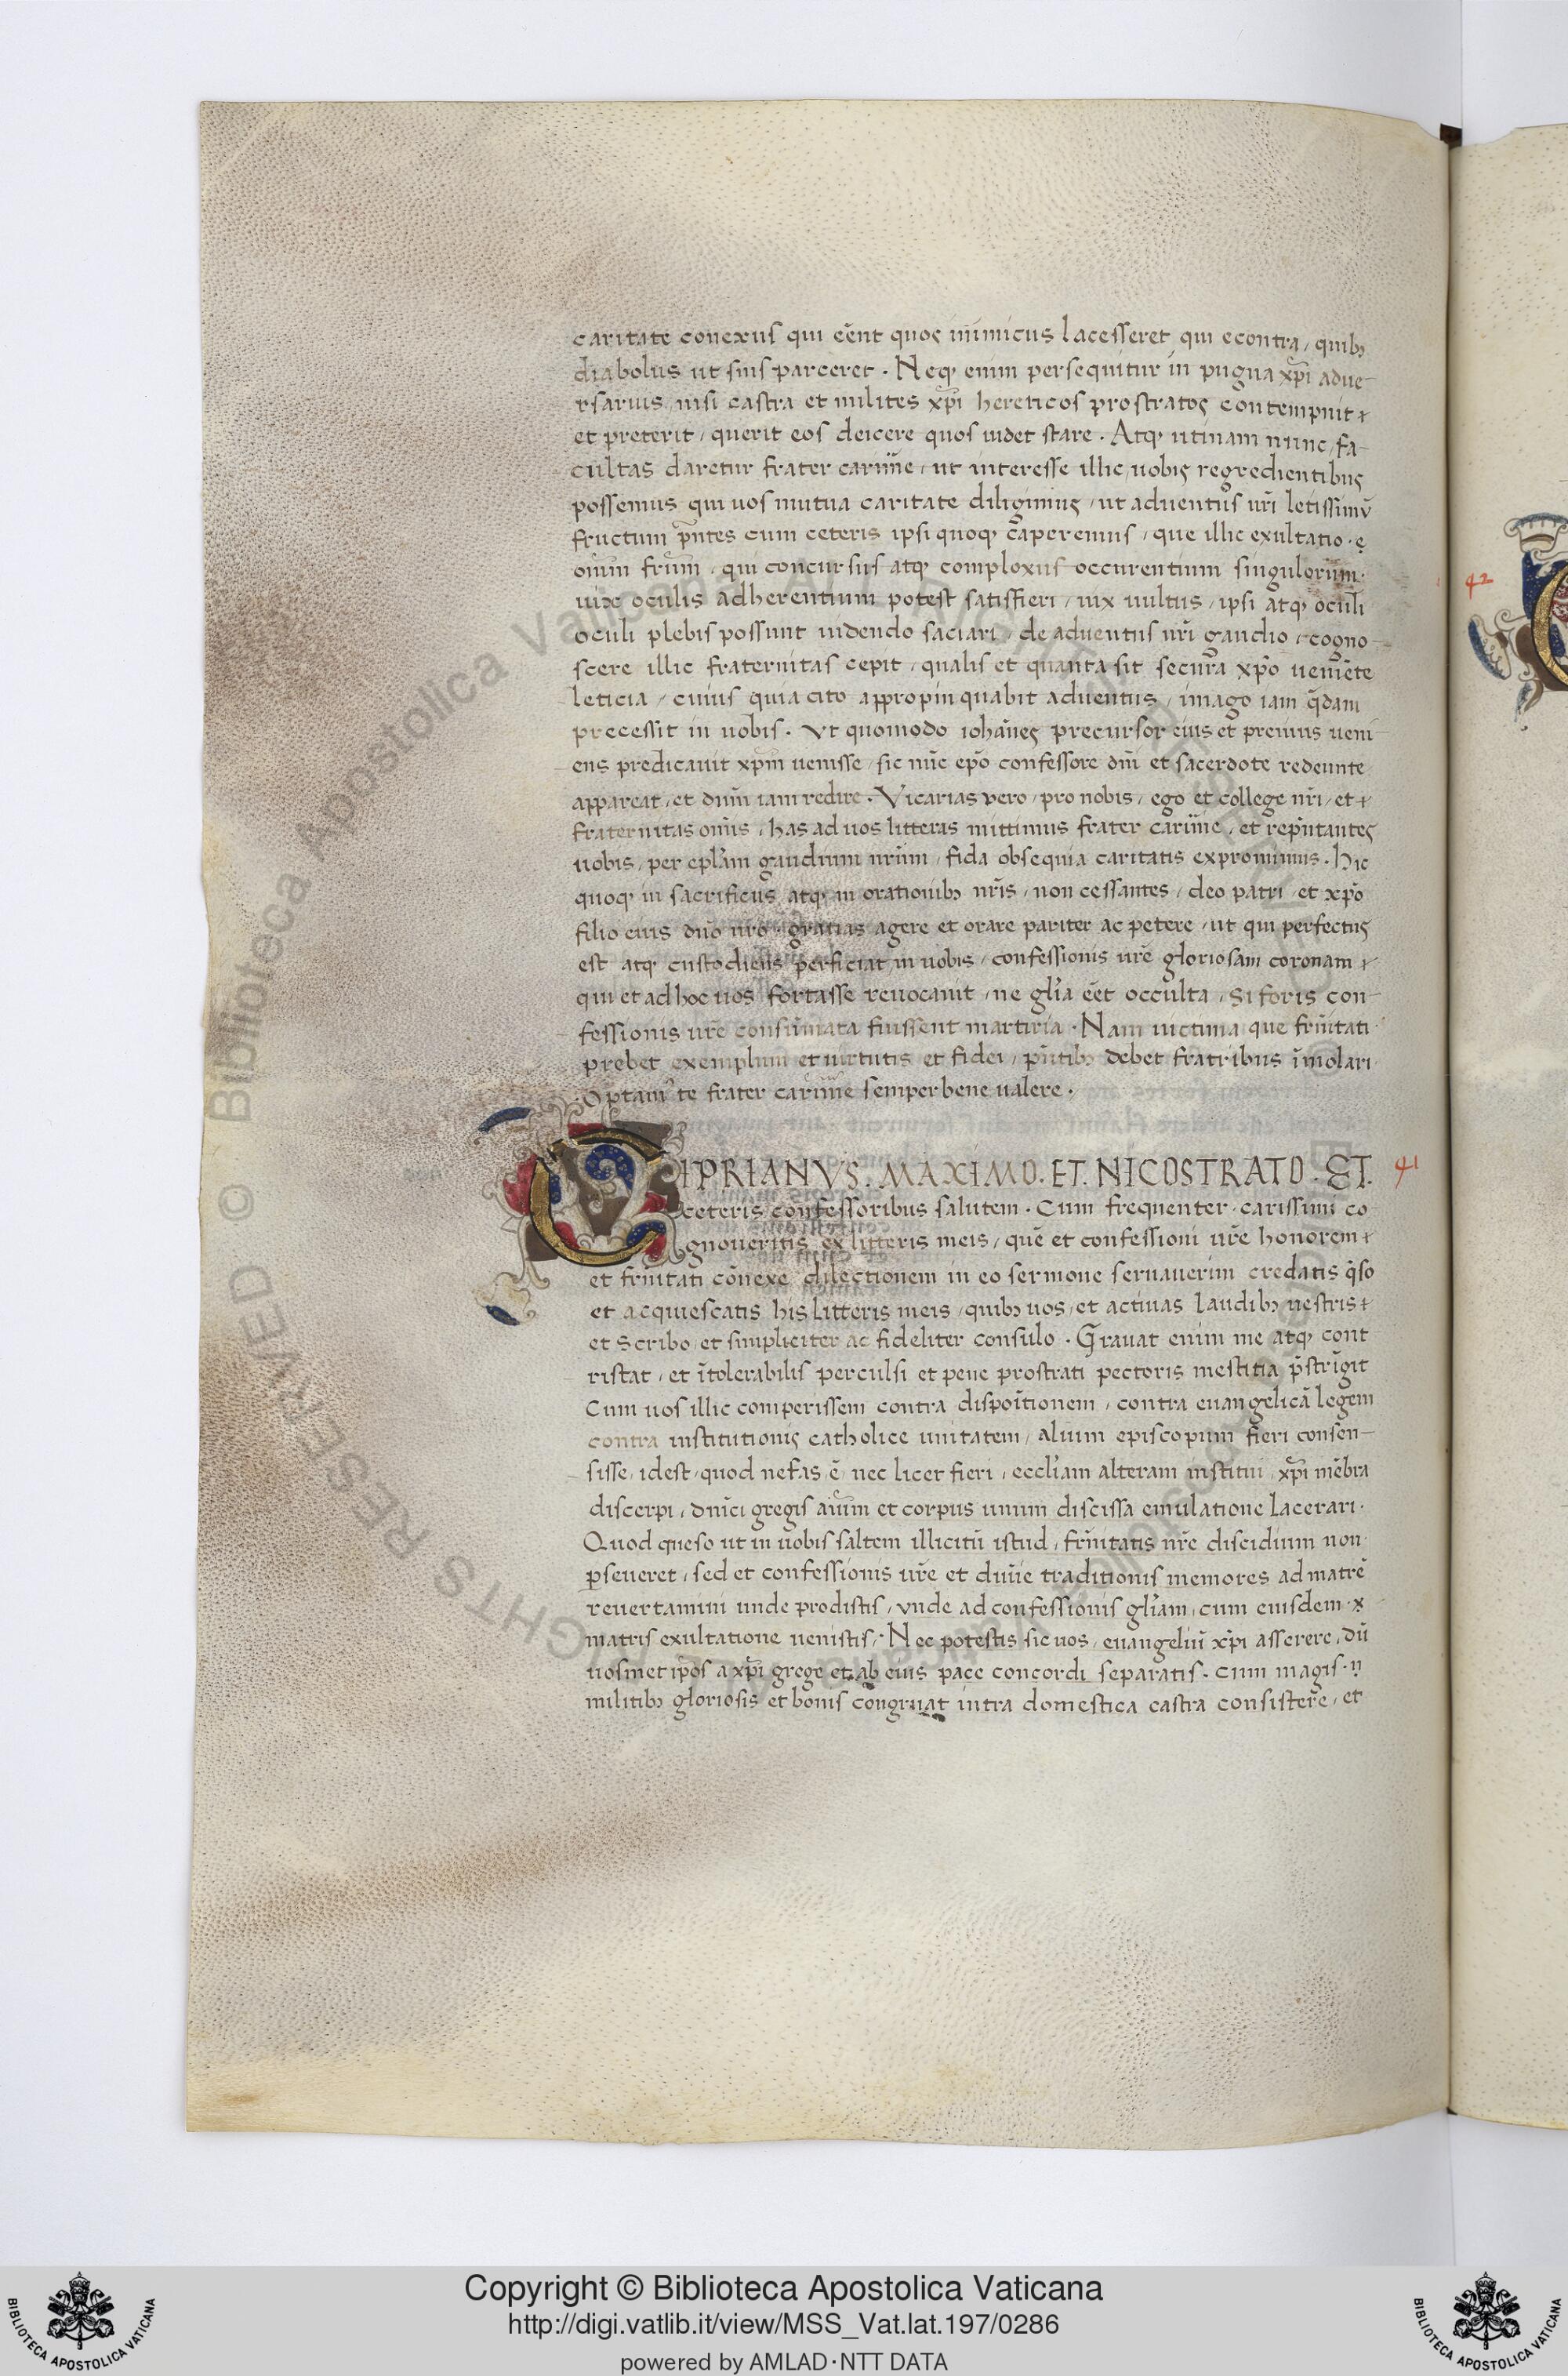 caritate conexus qui eēnt quos inimicus lacesseret qui econtra, quibꝫ
diabolus ut suis parceret. Neqꝫ enim persequitur in pugna xp̄i adue-
rsarius, nisi castra et milites xp̄i hereticos prostratos contempnit
et preterit, querit eos deicere quos uidet stare. Atqꝫ utinam nunc, fa-
cultas daretur frater carim̄e, ut interesse illic, uobis regredientibus
possemus qui uos mutua caritate diligimus, ut aduentus ur̄i letissimū
fructum p̄ntes cum ceteris ipsi quoqꝫ caperemus, que illic exultatio. ę
oīum fr̄um, qui concursus atqꝫ comploxus occurentium singulorum.
uix oculis adherentium potest satisfieri, uix uultus, ipsi atqꝫ oculi
oculi plebis possunt uidendo saciari, de aduentus ur̄i gaudio, cogno-
scere illic fraternitas cepit, qualis et quanta sit secura xp̄o ueniēte
leticia, cuius quia cito appropinquabit aduentus, imago iam q̄dam
precessit in uobis. Vt quomodo iohānes precursor eius et preuius ueni-
ens predicauit xp̄m uenisse, sic nūc ep̄o confessore dn̄i et sacerdote redeunte
appareat, et dn̄m iam redire. Vicarias vero, pro nobis, ego et college nr̄i, et
fraternitas om̄is, has ad uos litteras mittimus frater carim̄e, et rep̄ntantes
uobis, per ep̄lam gaudium nr̄um, fida obsequia caritatis expromimus. Hic
quoqꝫ in sacrificiis, atqꝫ in orationibꝫ nr̄is, non cessantes, deo patri, et xp̄o
filio eius dn̄o nr̄o, gratias agere et orare pariter ac petere, ut qui perfectus
est atqꝫ custodiens perficiat in uobis, confessionis ur̄e gloriosam coronam
qui et ad hoc uos fortasse reuocauit, ne gl̄ia eēt occulta, si foris con-
fessionis ur̄e consūmata fuissent martiria. Nam uictima que fr̄nitati
prebet exemplum et uirtutis et fidei, p̄ntibꝫ debet fratribus īmolari
Optamꝰ te frater carim̄e semper bene ualere.
CIPRIANVS. MAXIMO. ET. NICOSTRATO. ET. 41
ceteris confessoribus salutem. Cum frequenter, carissimi co-
gnoueritis ex litteris meis, quē et confessioni ur̄e honorem
et fr̄nitati cōnexe dilectionem in eo sermone seruauerim credatis q̄so
et acquiescatis his litteris meis, quibꝫ uos, et actiuas laudibꝫ uestris
et scribo, et simpliciter ac fideliter consulo. Grauat enim me atqꝫ cont
ristat, et ītolerabilis perculsi et pene prostrati pectoris mestitia p̄strīgit
Cum uos illic comperissem contra dispoītionem, contra euangelicā legem
contra institutionis catholice unitatem, alium episcopum fieri consen-
sisse, idest, quod nefas ē, nec licet fieri, eccl̄iam alteram institui, xp̄i mēbra
discerpi, dn̄ici gregis aīum et corpus unum discissa emulatione lacerari.
Quod queso ut in uobis saltem illicitū istud, fr̄nitatis nr̄e discidium non
p̱seueret, sed et confessionis ur̄e et diuīe traditionis memores ad matrē
reuertamini unde prodistis, vnde ad confessionis gl̄iam, cum eiusdem
matris exultatione uenistis. Nec potestis sic uos, euangeliū xp̄i asserere, dū
uosmet ip̄os a xp̄i grege et ab eius pace concordi separatis. Cum magis. ņ
militibꝫ gloriosis et bonis congruat intra domestica castra consistere, et
42
Copyright © Biblioteca Apostolica Vaticana
http://digi.vatlib.it/view/MSS_Vat.lat.197/0286
powered by AMLAD·NTT DATA
BIBLIOTECA APOSTOLICA VATICANA
BIBLIOTECA APOSTOLICA VATICANA